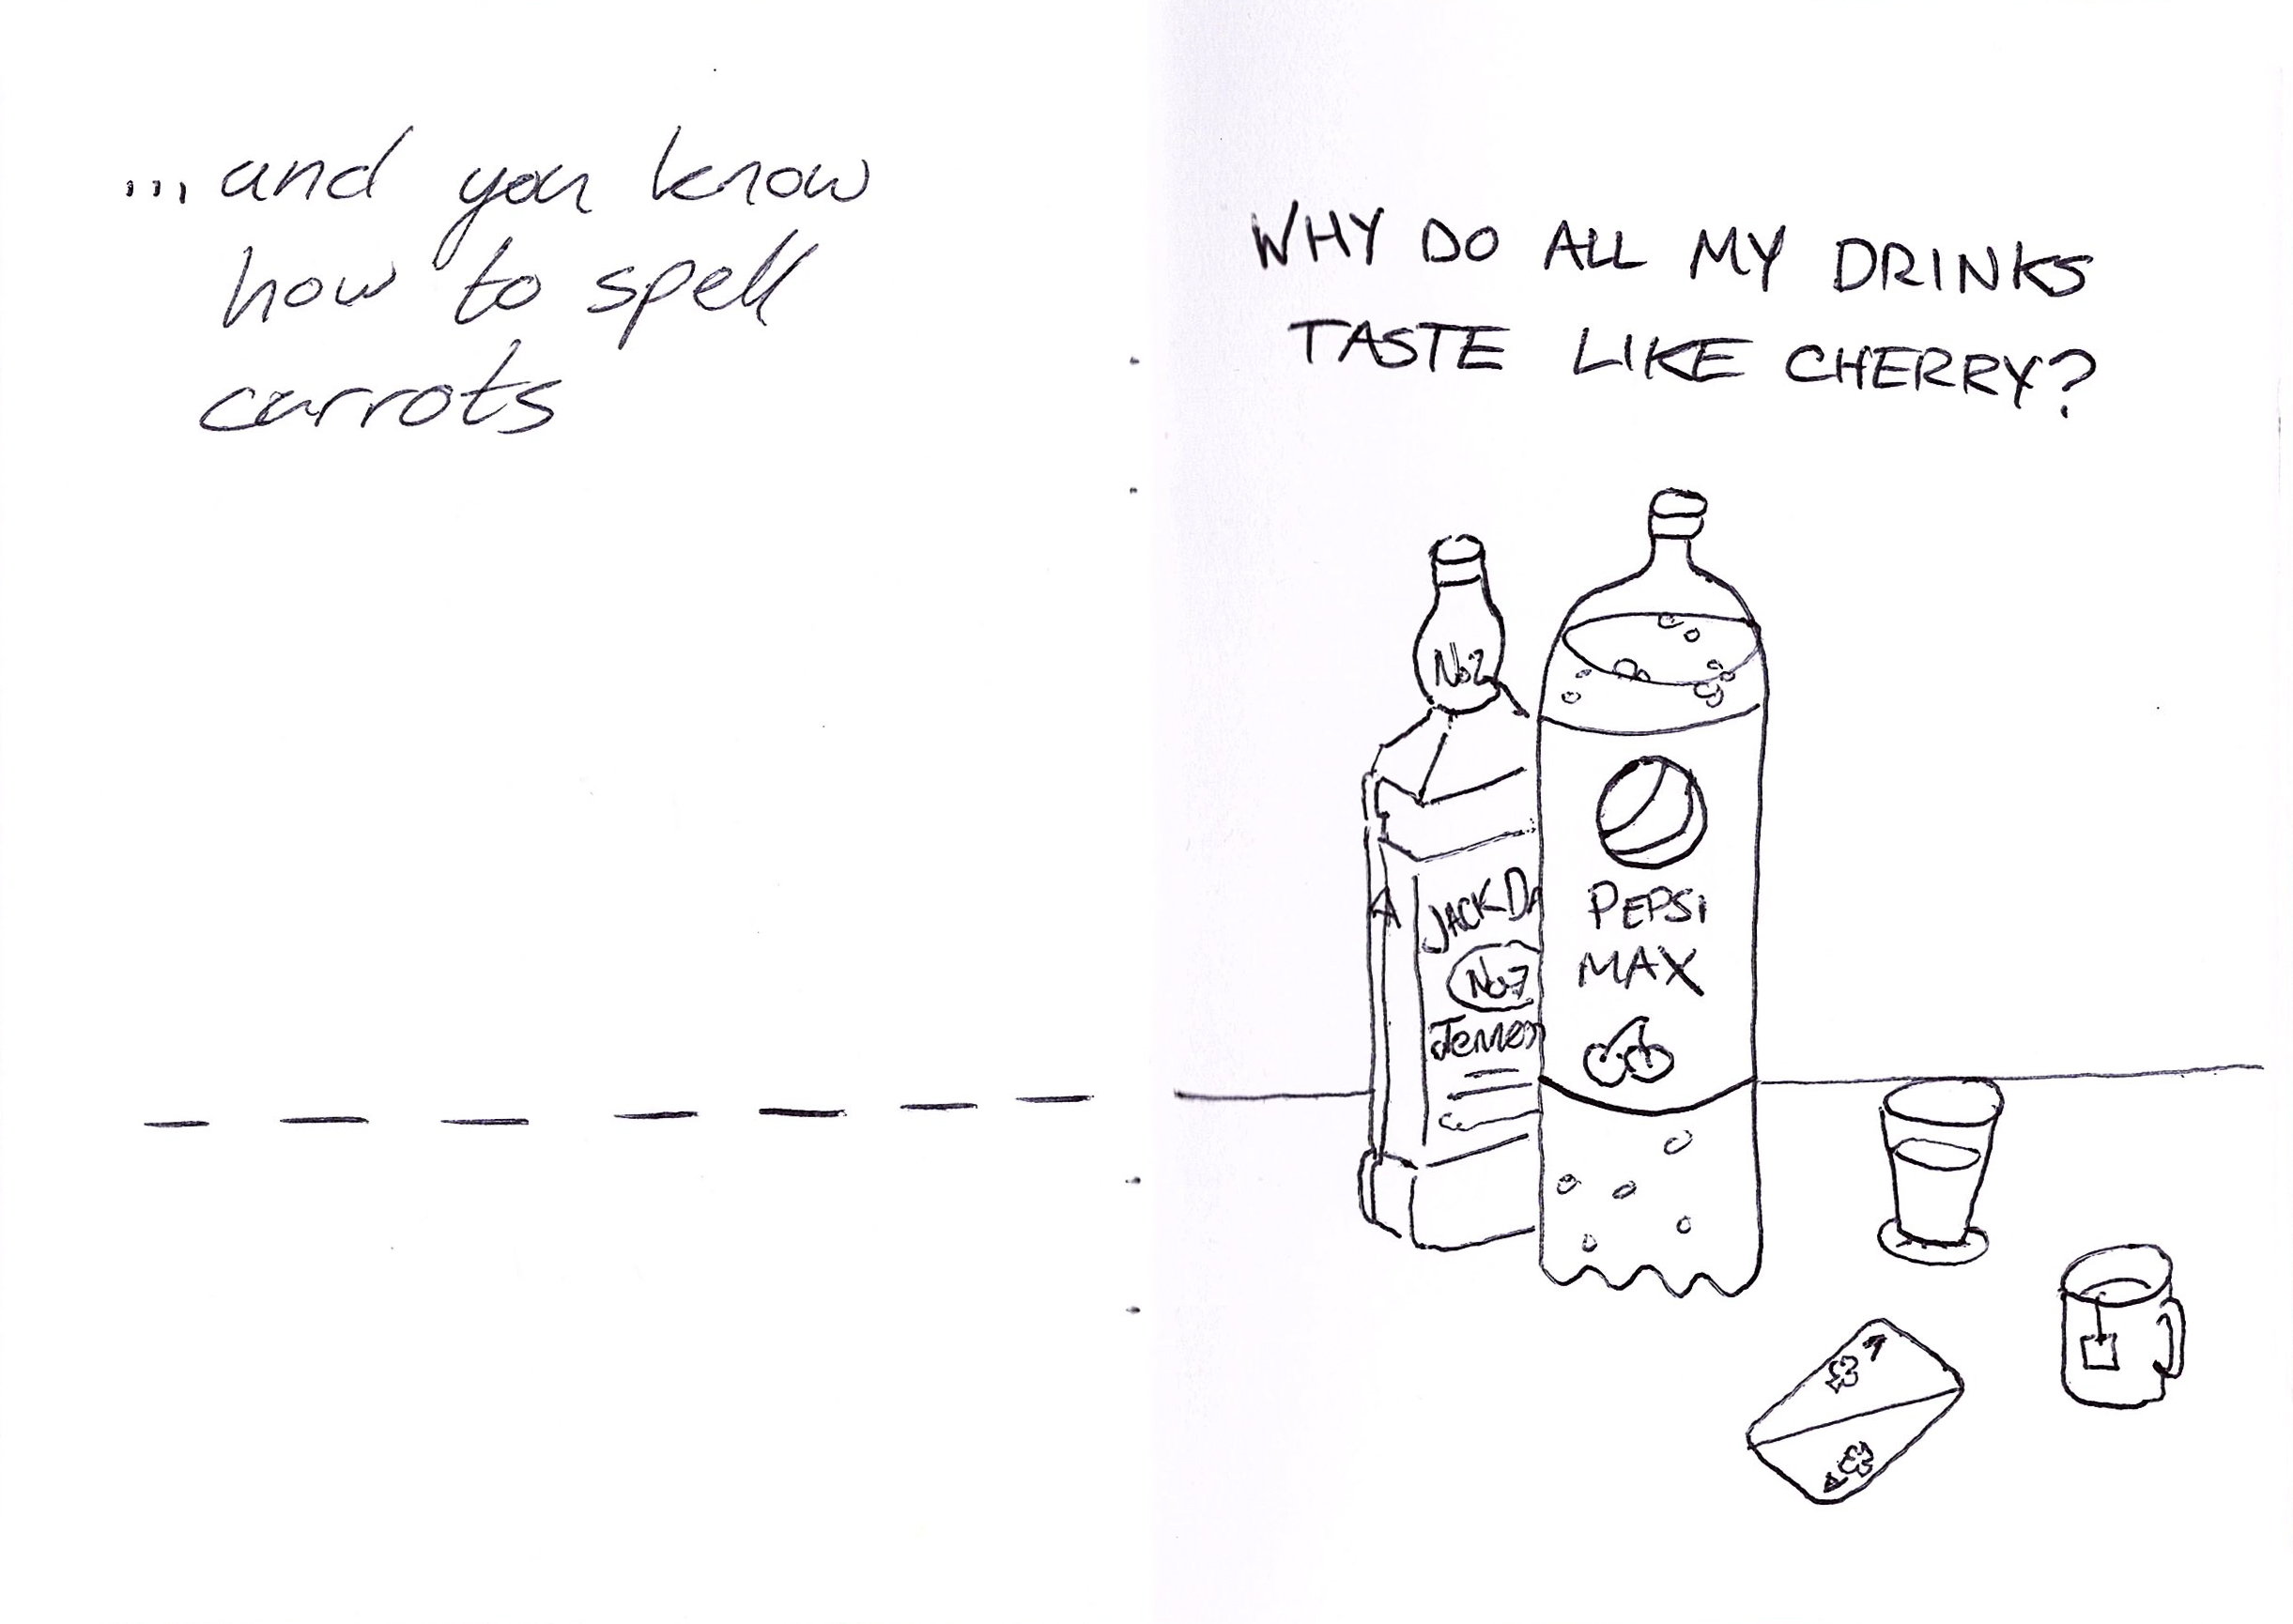 ...and you know
how to spell
carrots
WHY DO ALL MY DRINKS
TASTE LIKE CHERRY?
JACK DA
No7
PEPSI
MAX